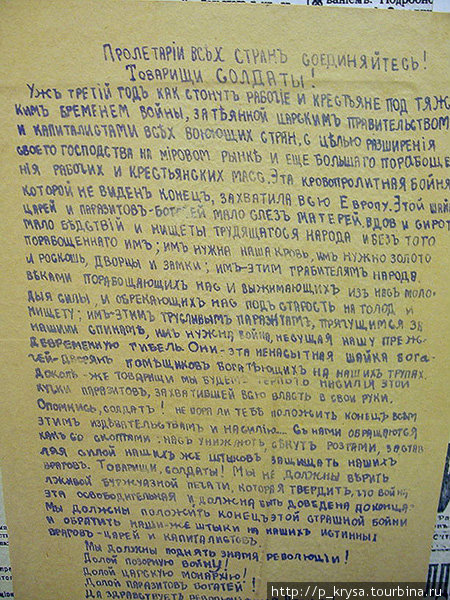 Пролетарiи всѣхъ странъ соединяйтесь!
Товарищи солдаты!
Ужъ третiй годъ как стонутъ рабочiе и крестьяне под тяж
ким бременем войны, затѣянной царским правительством
и капиталистами всѣх воюющих стран, с цѣлью расширенiя
своего господства на мiровом рынкѣ и еще большаго порабоще
нiя рабочих и крестьянских масс. Эта кровопролитная бойня
которой не виден конецъ, захватила всю Европу. Этой шай
царей и паразитов-богатей мало слезъ матерей, вдов и сирот
мало бѣдствiй и нищеты трудящагося народа и без того
порабощеннаго имъ; имъ нужна наша кровь, имъ нужно золото
и роскошь, дворцы и замки; имъ-этим грабителямъ народа
вѣками порабощающих нас и выжимающих изъ нас моло
дыя силы, и обрекающихъ нас под старость на голод и
нищету; имъ-этим трусливым паразитамъ, прячущимся за
нашими спинами, имъ нужна война, несущая нашу преж
девременную гибель. Они-эта ненасытная шайка бога
тей-дворян помѣщиков богатѣющих на наших трупах.
Доколѣ-же товарищи мы будем насилiя этой
кучки паразитов, захватившей всю власть в свои руки.
Опомнись, солдатъ! не пора ли тебѣ положить конецъ всѣм
этимъ издѣвательствам и насилiю... Съ нами обращаются
какъ со скотами: нас унижают, сѣкут розгами, застав
ляя силой нашихъ же штыков защищать наших
врагов. Товарищи, солдаты! Мы не должны вѣрить
лживой буржуазной печати, которая твердитъ, что война
эта освободительная и должна быть доведена до конца.
Мы должны положить конецъ этой страшной бойни
и обратить наши-же штыки на наших истинных
врагов-царей и капиталистов.
Мы должны поднять знамя революцiи!
Долой позорную войну!
Долой царскую монархiю!
Долой паразитов богатей!
Да здравствует
http://p_krysa.tourbina.ru